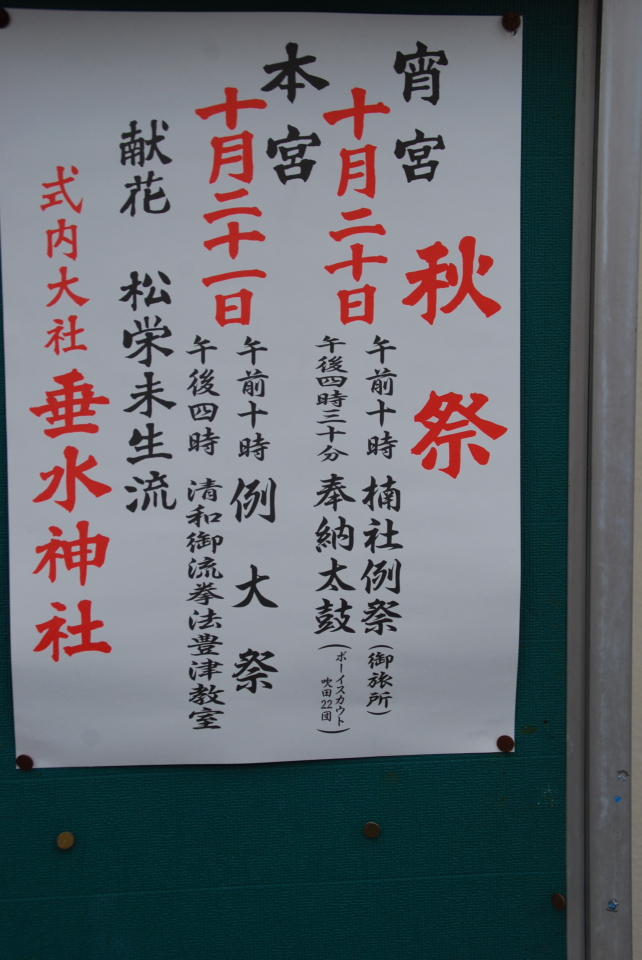 秋祭
宵宮
十月二十日
午前十時 楠社例祭(御旅所)
午後四時三十分 奉納太鼓(ボーイスカウト吹田22団)
本宮
十月二十一日
午前十時 例大祭
午後四時 清和御流拳法豊津教室
献花 松栄未生流
式内大社 垂水神社